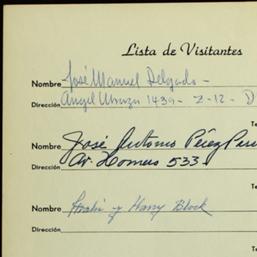 Lista de Visitantes
Nombre José Manuel Delgado -
Dirección Angel 1439 - Z-12 - D
Te
Nombre José Antonio Pérez
Dirección Av. Homero 533
Te
Nombre y Harry Block
Dirección
Te